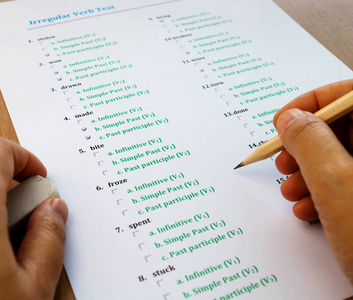 Irregular Verb Test
1. stolen
a. Infinitive (V1)
b. Simple Past (V2)
c. Past participle (V3)
2. won
a. Infinitive (V1)
b. Simple Past (V2)
c. Past participle (V3)
3. drawn
a. Infinitive (V1)
b. Simple Past (V2)
c. Past participle (V3)
4. made
a. Infinitive (V1)
b. Simple Past (V2)
c. Past participle (V3)
5. bite
a. Infinitive (V1)
b. Simple Past (V2)
c. Past participle (V3)
6. froze
a. Infinitive (V1)
b. Simple Past (V2)
c. Past participle (V3)
7. spent
a. Infinitive (V1)
b. Simple Past (V2)
c. Past participle (V3)
8. stuck
a. Infinitive (V1)
b. Simple Past (V2)
c. Past participle (V3)
9.
a. Infinitive (V1)
b. Simple Past (V2)
c. Past participle (V3)
10. broken
a. Infinitive (V1)
b. Simple Past (V2)
c. Past participle (V3)
11. wore
a. Infinitive (V1)
b. Simple Past (V2)
c. Past participle (V3)
12. torn
a. Infinitive (V1)
b. Simple Past (V2)
c. Past participle (V3)
13. done
a. Infinitive
b. Simple
c. Past
14.